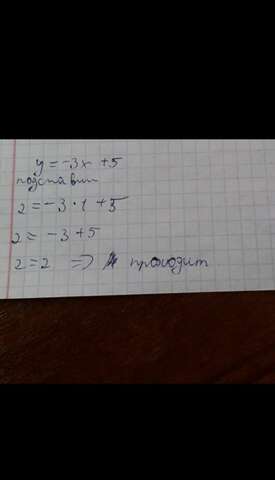 y = -3x + 5
подставим
2 = -3 · 1 + 5
2 = -3 + 5
2 = 2 => проходит